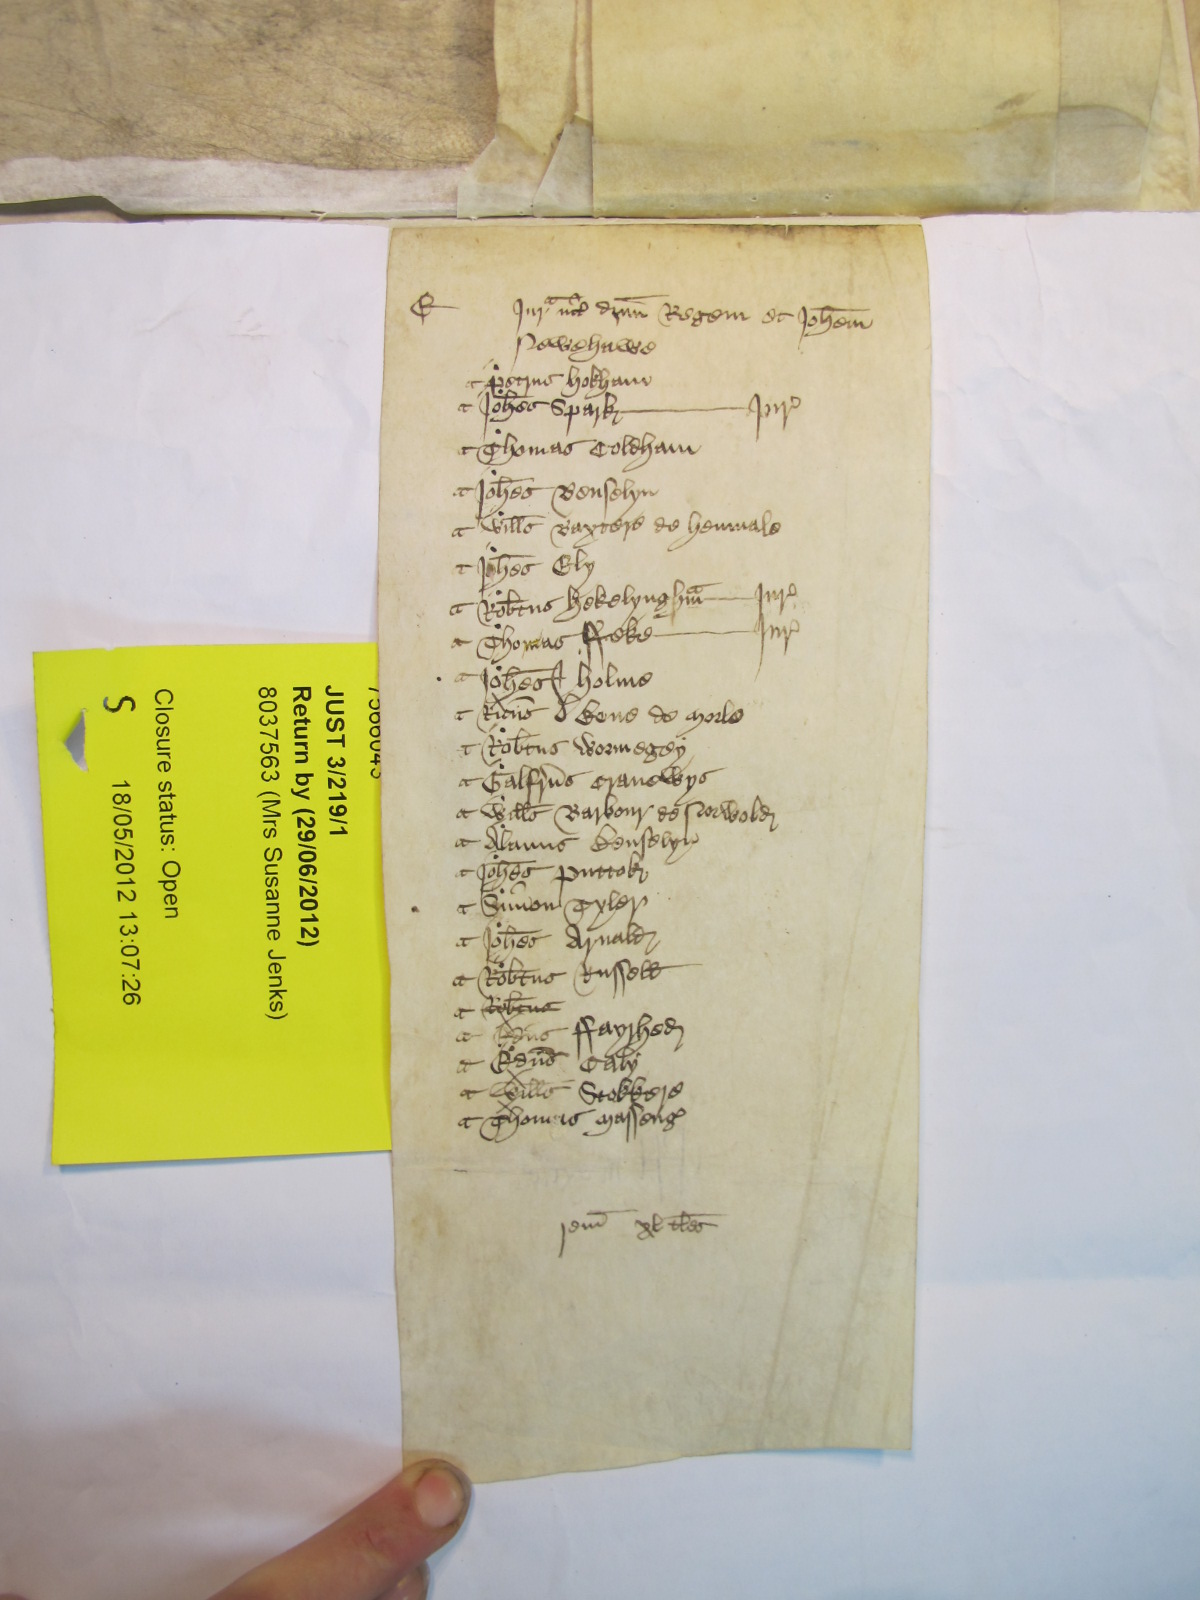 Jur int dnm Regem et Johem
Newehawe
Petrus Hokham
Johes Spark Jur
Thomas Coldham
Johes Benselyn
Wills Baxtere de Hennale
Johes Ely
Robtus Hekelyngham Jur
Thomas Ffeke Jur
Johes Holme
Ricus Bene de Morle
Robtus Wormegey
Galfrus Cranewys
Wills Barbour de Norwold
Alanus Benselyn
Johes Puttok
Simon Tyler
Johes Arnald
Robtus Russell
Robtus
Ffayrhed
Edus Caly
Wills Stokkere
Thomas Masseng
xl
JUST 3/219/1
Return by (29/06/2012)
8037563 (Mrs Susanne Jenks)
Closure status: Open
S 18/05/2012 13:07:26